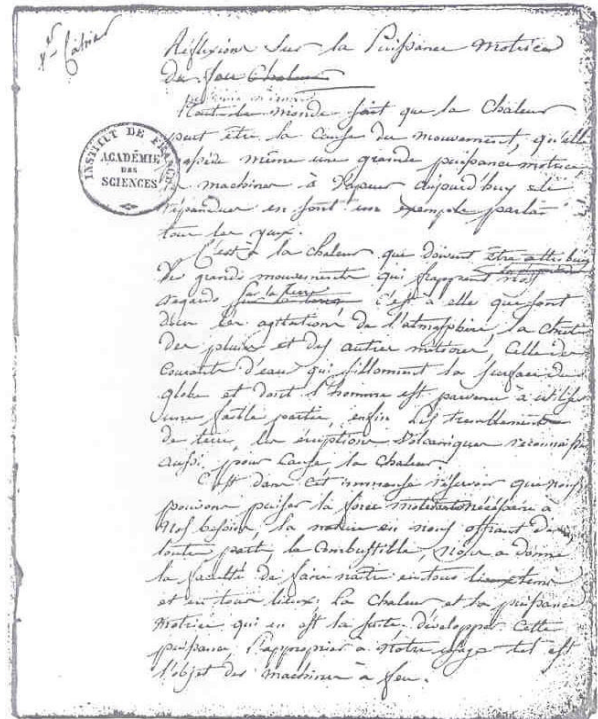 1er Cahier
Réflexions sur la Puissance Motrice
du feu Chaleur
INSTITUT DE FRANCE
ACADÉMIE
DES
SCIENCES
Tout le monde sait que la Chaleur
peut être la Cause du mouvement, qu'elle
possède même une grande puissance motrice,
machines à Vapeur aujourd'huy si
répandues en sont un exemple parlant
tous les yeux.
C'est à la chaleur que doivent être attribués
les grands mouvements qui frappent nos
regards sur la terre c'est à elle que sont
dues les agitations de l'atmosphère, la chute
des pluies et des autres météores, Celle des
Courants d'eau qui sillonnent la surface du
globe et dont l'homme est parvenu à utiliser
une faible partie, enfin les tremblements
de terre, les éruptions Volcaniques reconnaissent
aussi pour Cause la Chaleur.
C'est dans cet immense réservoir que nous
pouvons puiser la force nécessaire à
nos besoins la nature en nous offrant de
toutes parts le Combustible, nous a donné
la faculté de faire naître en tous temps
et en tous lieux la Chaleur, et la puissance
motrice qui en est la suite. développer Cette
puissance, l'approprier à notre usage tel est
l'objet des machines à feu.